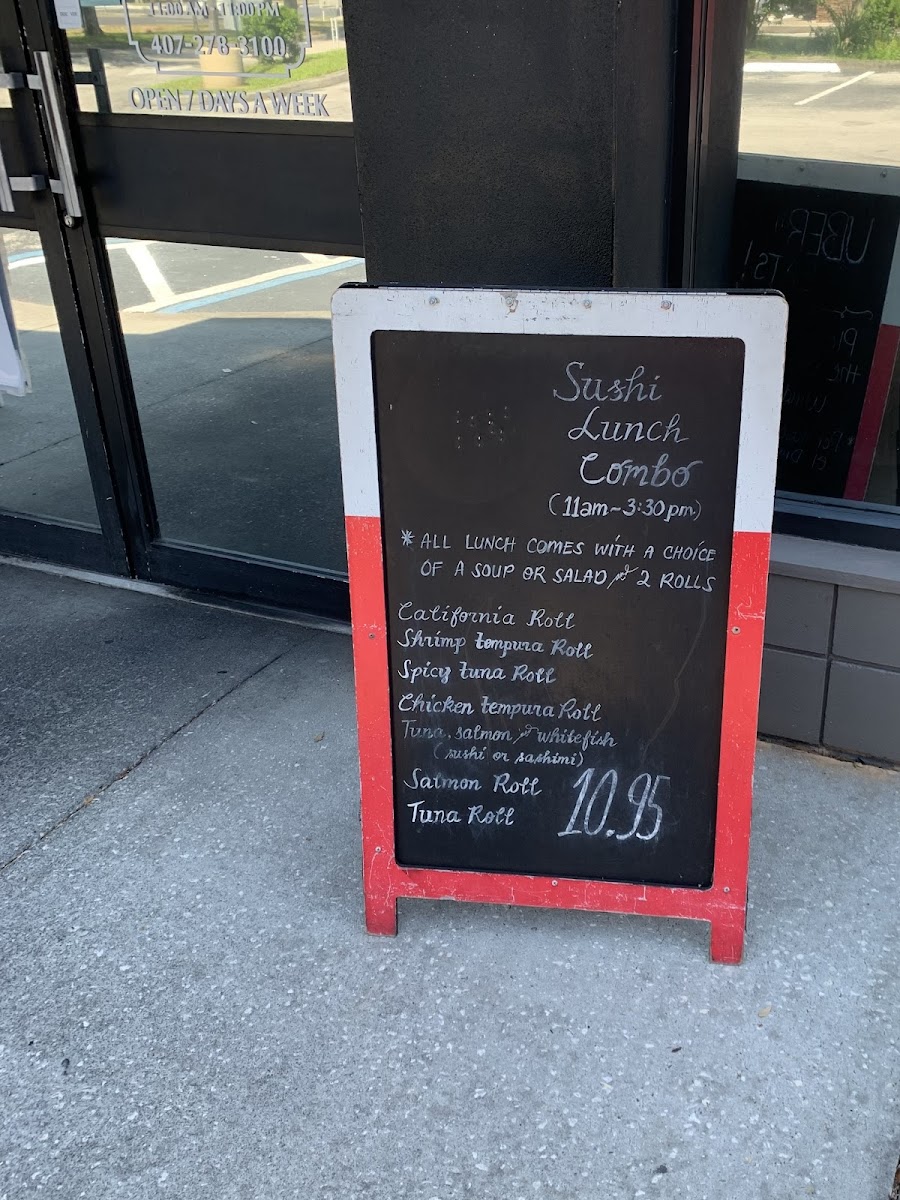 11:00 AM - 11:00 PM
407-278-3100
OPEN 7 DAYS A WEEK
UBER
Sushi
Lunch
Combo
(11am~3:30pm)
* ALL LUNCH COMES WITH A CHOICE
OF A SOUP OR SALAD & 2 ROLLS
California Roll
Shrimp tempura Roll
Spicy tuna Roll
Chicken tempura Roll
Tuna, salmon & whitefish
(sushi or sashimi)
Salmon Roll
Tuna Roll
10.95